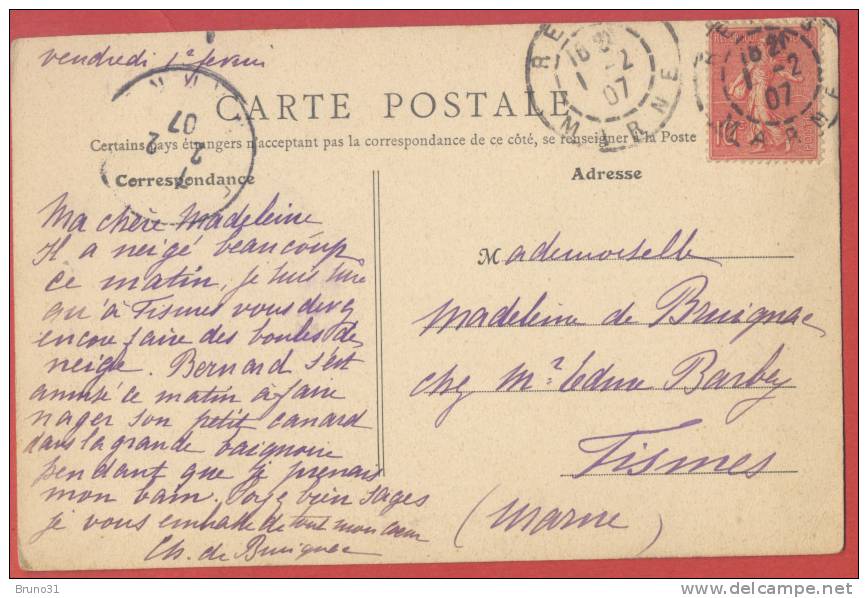 vendredi 1er février
CARTE POSTALE
Certains pays étrangers n'acceptant pas la correspondance de ce côté, se renseigner à la Poste
Correspondance
Adresse
Ma chère Madeleine
Il a neigé beaucoup
ce matin, je suis sûre
qu'à Fismes vous devez
encore faire des boules de
neige. Bernard s'est
amusé ce matin à faire
nager son petit canard
dans la grande baignoire
pendant que je prenais
mon bain. Soyez bien sages
je vous embrasse de tout mon cœur
Ch. de Bruignac
Mademoiselle
Madeleine de Bruignac
chez Mr Barbey
Fismes
(Marne)
18
1-2
07
MARNE
18
1-2
07
MARNE
10
2
07
Bruno31
delcampe.net